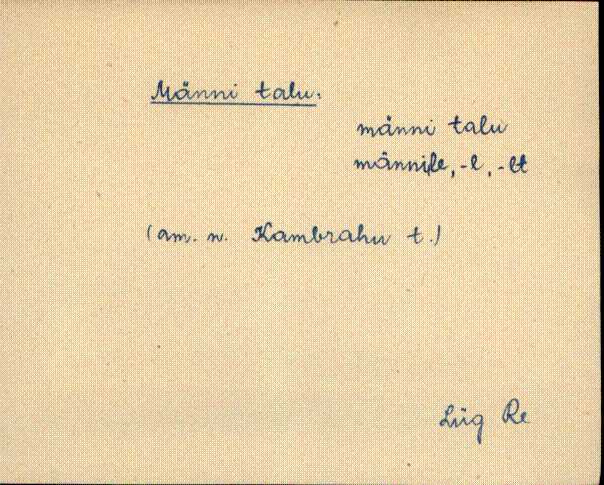 Männi talu.
männi talu
männile, -l, -lt
(am. n. Kambrahu t.)
Lüg Re